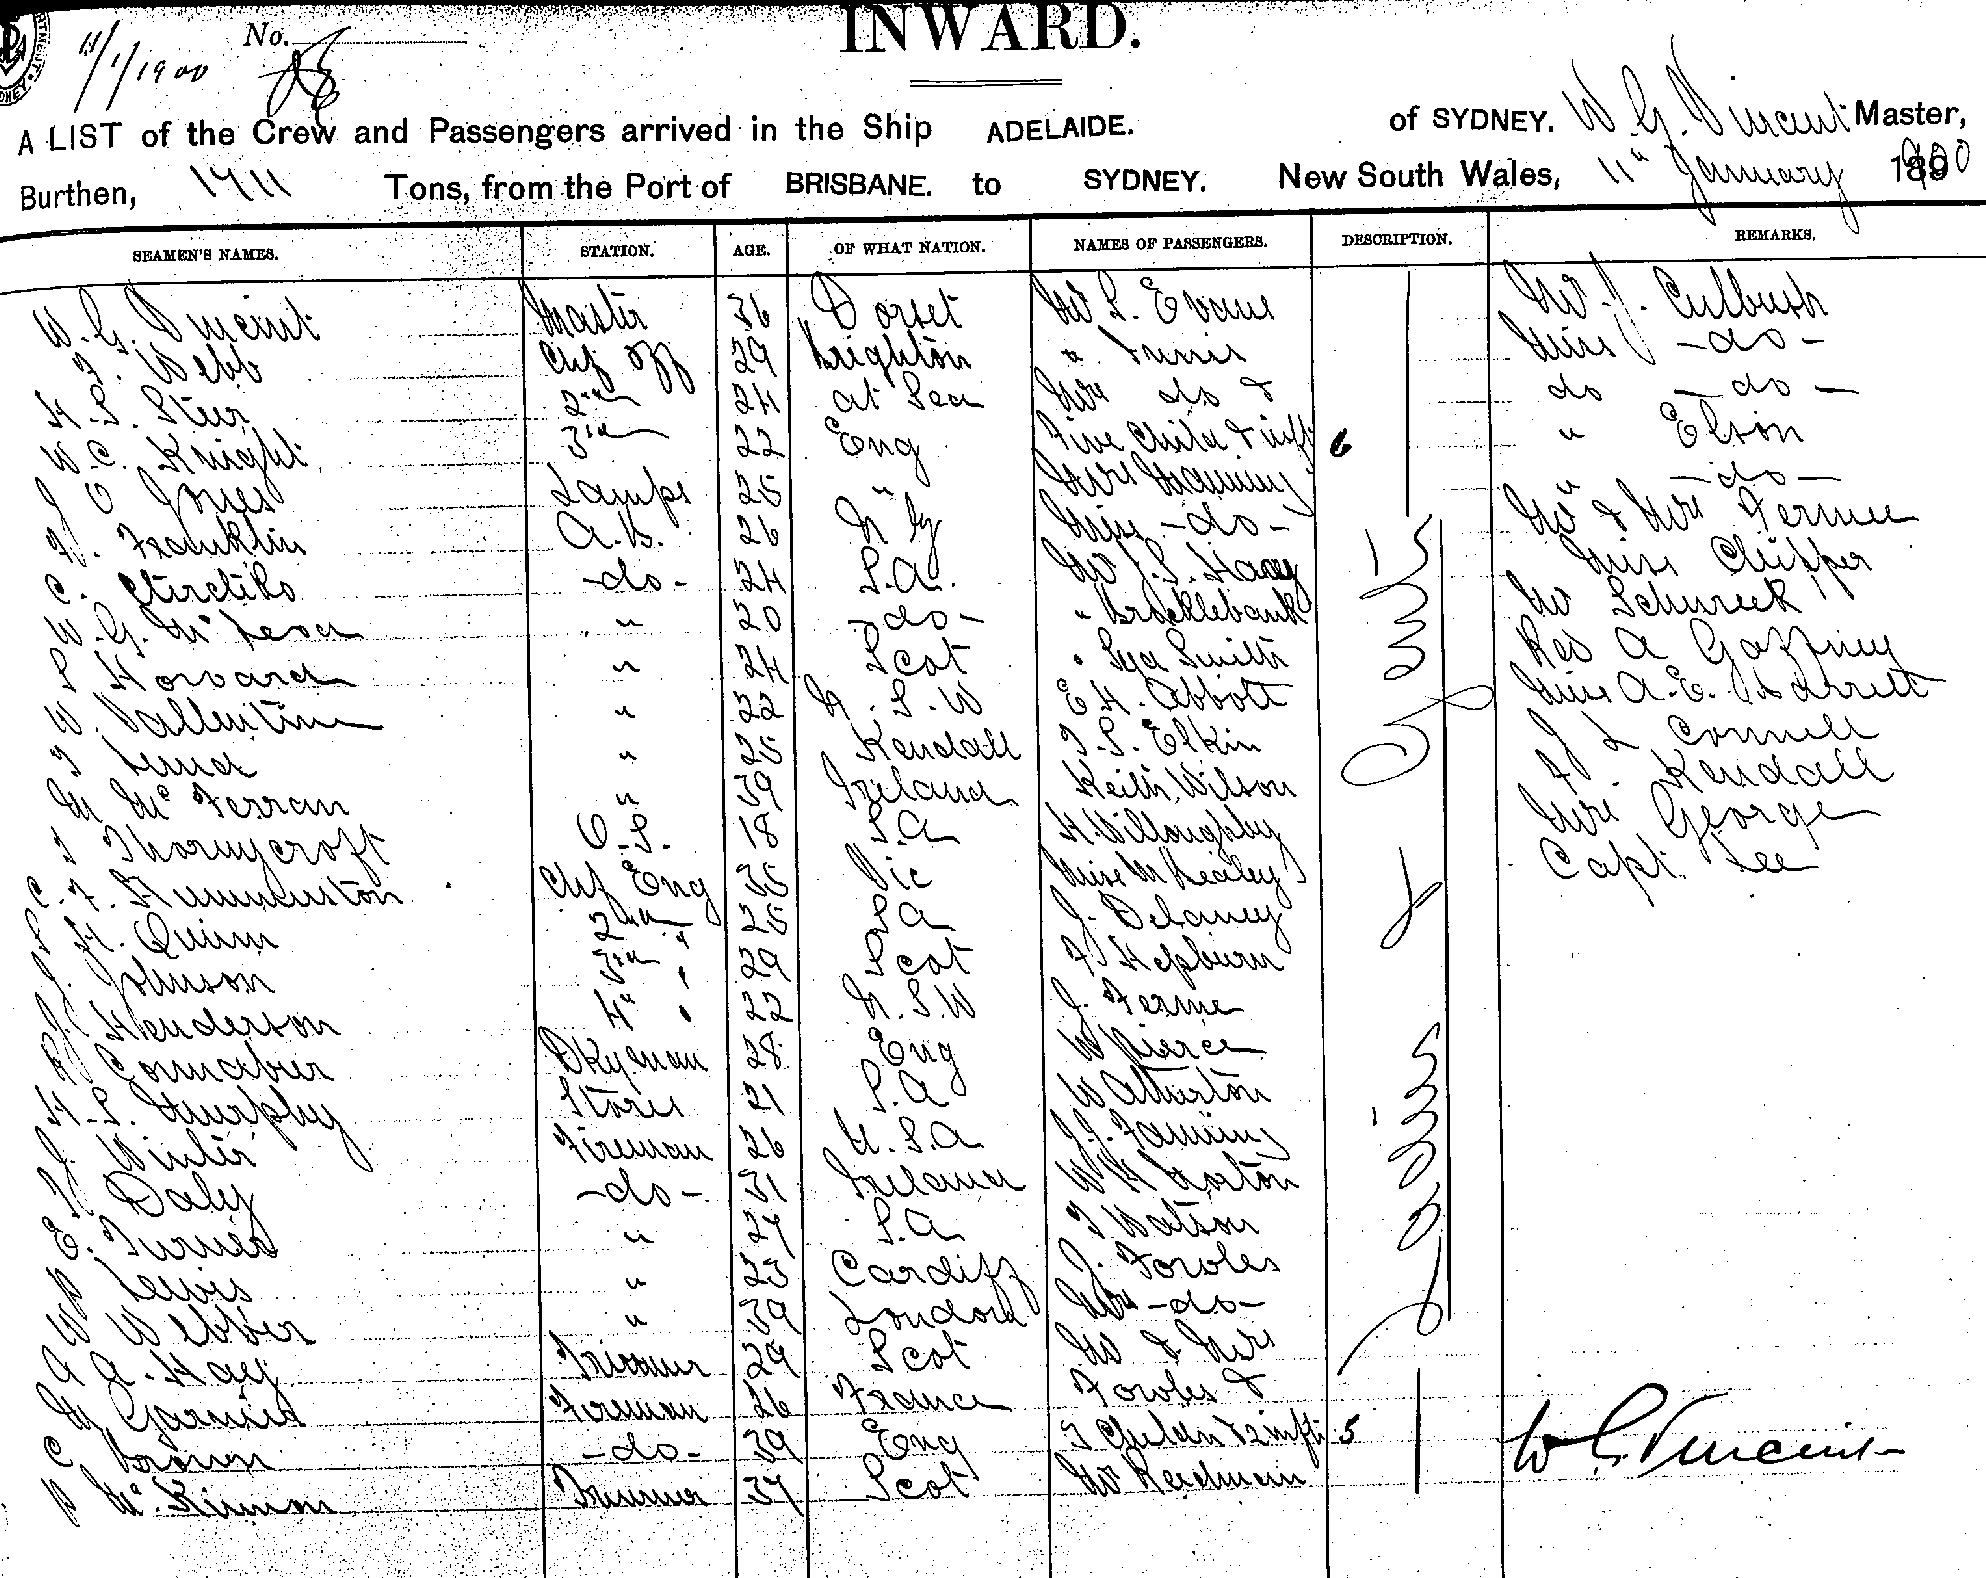 11/1/1900 No.
INWARD.
A LIST of the Crew and Passengers arrived in the Ship ADELAIDE. of SYDNEY. W. G. Vincent Master,
Burthen, 1711 Tons, from the Port of BRISBANE. to SYDNEY. New South Wales, 11th January 1900
SEAMEN'S NAMES. STATION. AGE. OF WHAT NATION. NAMES OF PASSENGERS. DESCRIPTION. REMARKS.
W. G. Vincent Master 36 Dorset Mr L. Evans Mr J. Culbush
Webb Chf Off 29 Brighton " Miss -do-
H. S. Steer 2nd 24 at Sea Mrs do & do -do-
W. C. Knight 3rd 22 Eng Five Child & inft 6 " Elson
J O Jones Lamps 25 " Mrs Manning " -do-
Franklin A.B. 26 N Z Miss -do- Mr & Mrs
C. -do- 24 S.A. Mr Miss Chipper
W. G. 20 -do- " Brocklebank Mr
S Howard " 24 Scot " Smith Rev A Gaffney
W. Vallentine " 22 N.S.W E H. Abbott Miss A. E. Barrett
T Lund " 25 Kendall T. S. Elkin J L Connell
M McFerran " 39 Ireland Keith Wilson Kendall
T Thornycroft O.S. 18 S.A H. Willoughby Mrs George
C. F. Chf Eng 35 Vic Miss M Kealey Capt. Lee
H. Quinn 2nd " 25 S A J. Delaney
J. Johnson 3rd " 29 Scot Hepburn
Henderson 4th " 22 N.S.W J.
Dkyman 28 Eng W Pierce
H. S. Murphy Stores 21 S.A W Atherton
J. Winter Fireman 26 U.S.A J. J. Fanning
Daly -do- 31 Ireland W H Norton
E. Turner " 27 S.A T Watson
P Lewis " 23 Cardiff J. Fowles
W Webber " 39 London Mrs -do-
A A. Hay Trimmer 29 Scot Mr & Mrs
M Fireman 26 France Fowles &
C Brown -do- 39 Eng 3 Childn & inft 5
P McKinnon Trimmer 37 Scot Mr Reidman
W G Vincent